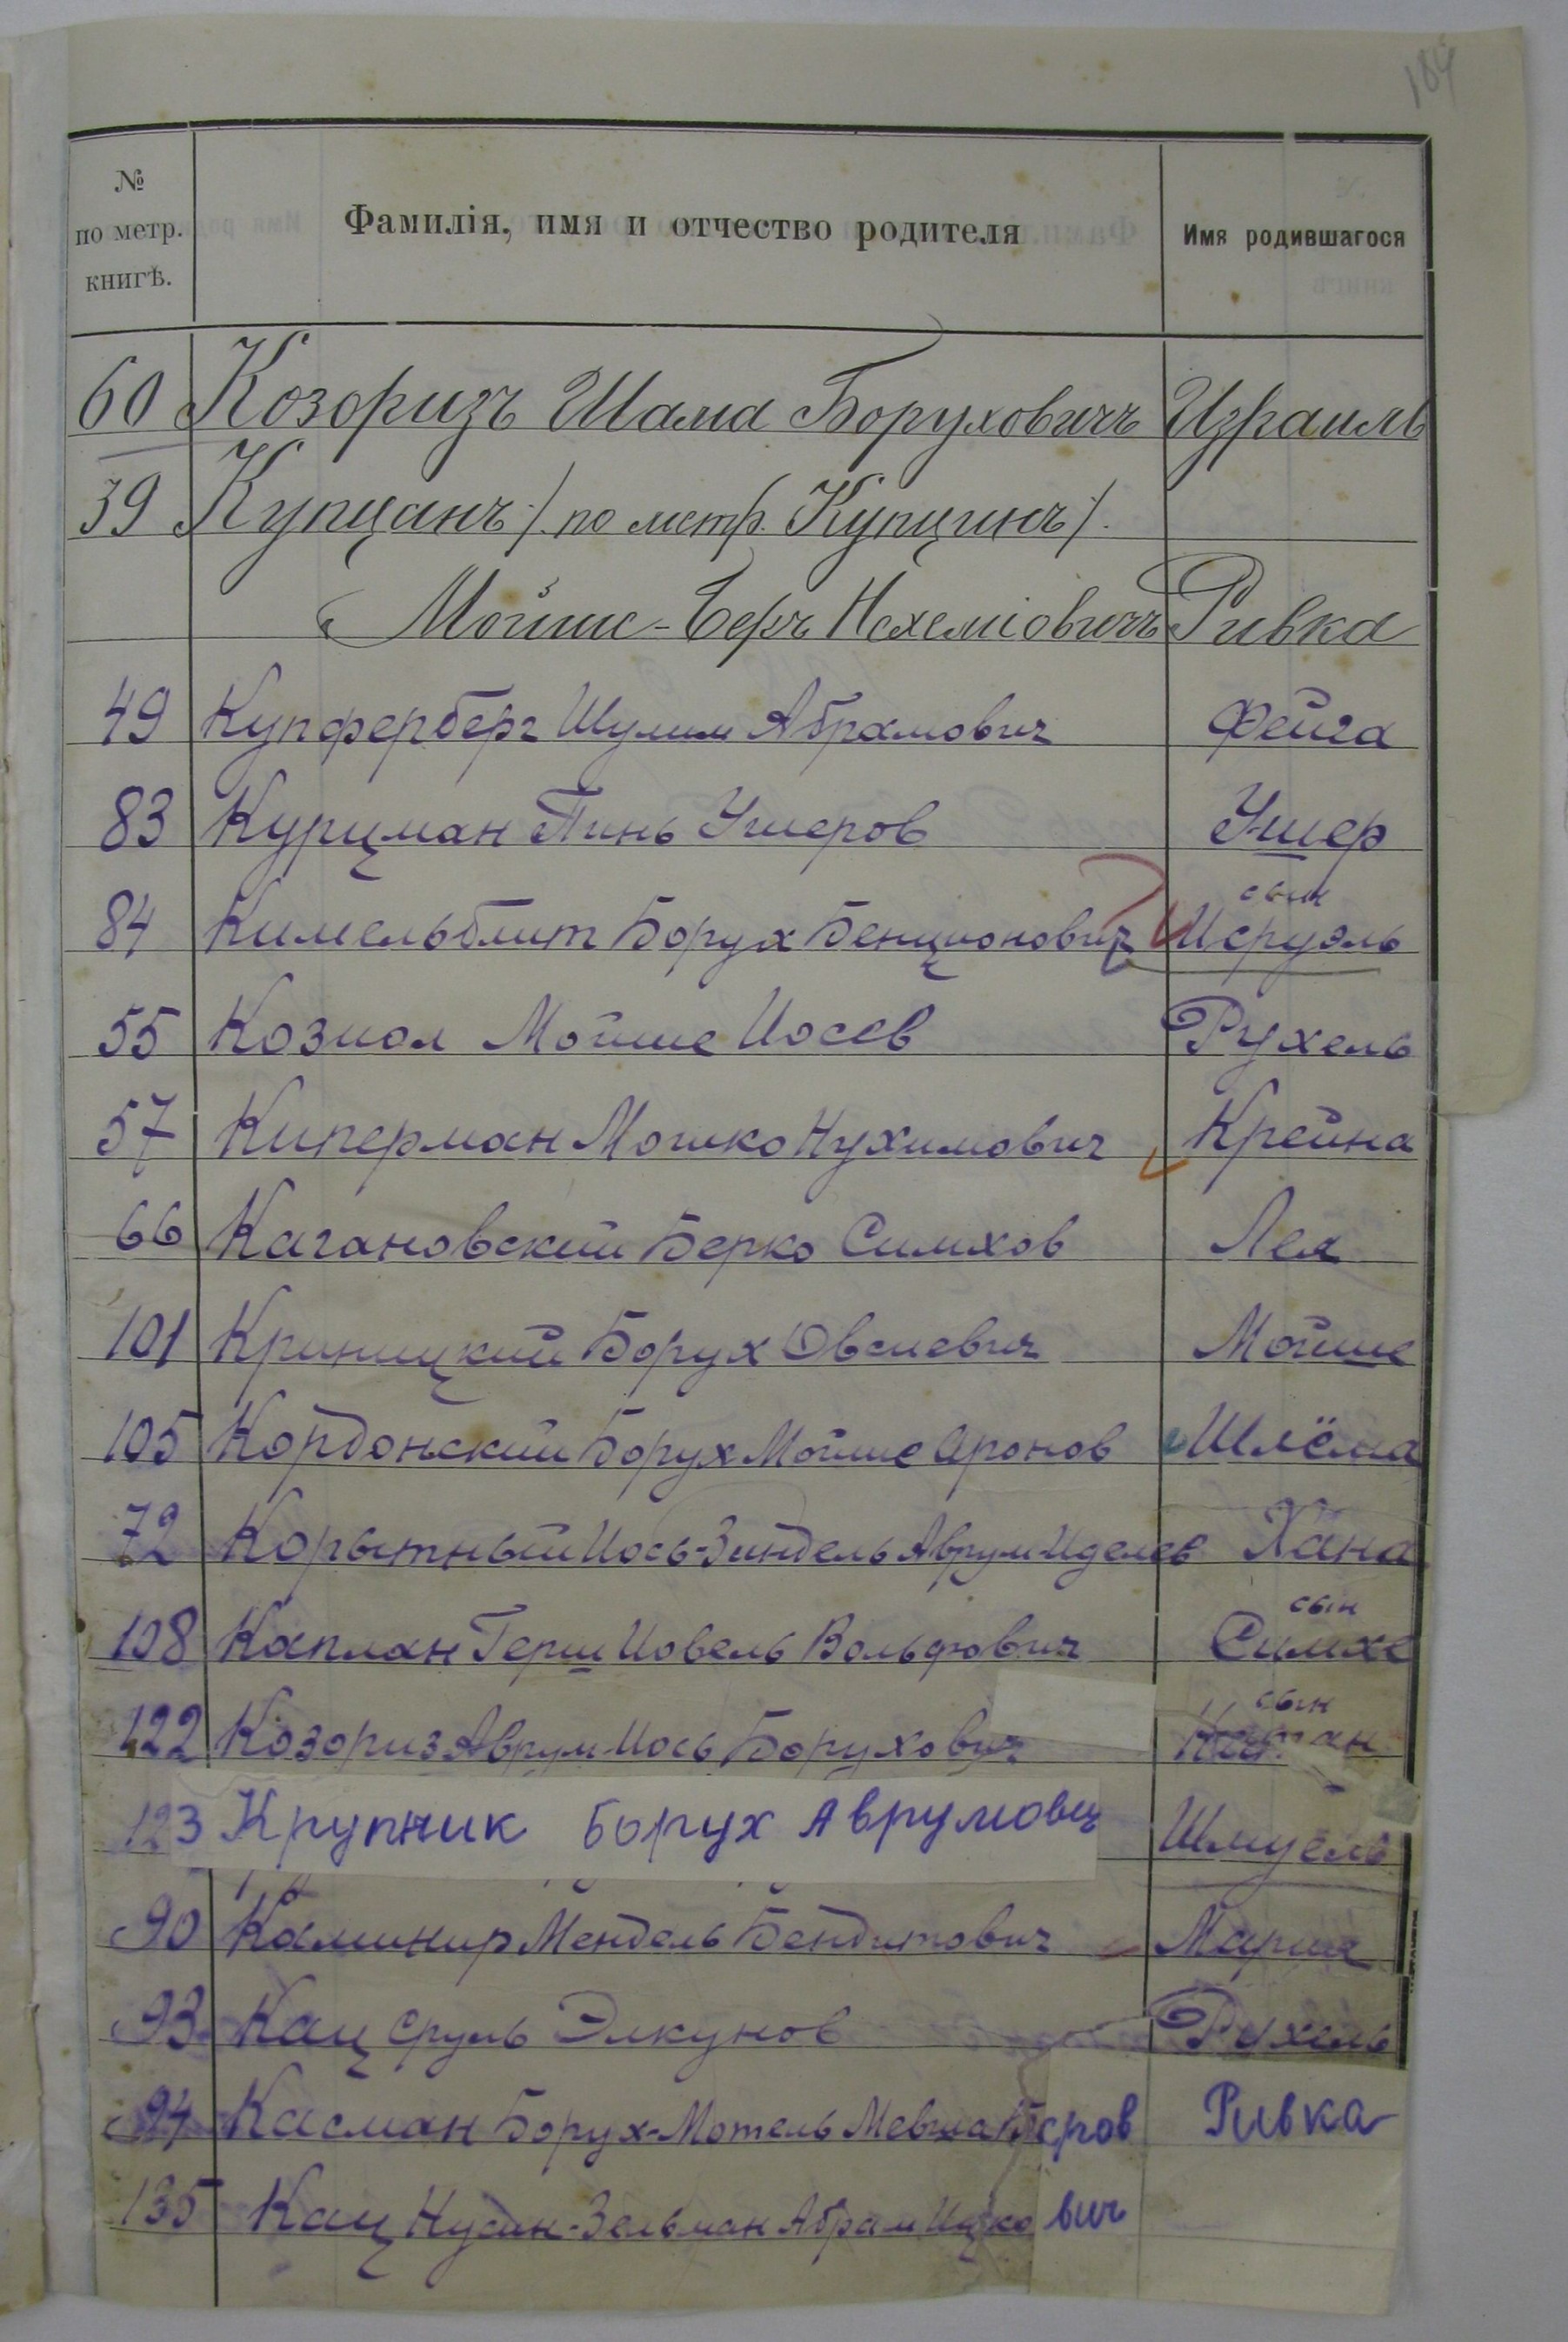 184
№ по метр. книгѣ. Фамилія, имя и отчество родителя Имя родившагося
60 Козоризъ Шама Боруховичъ Израиль
39 Купцанъ /. по метр. Купцинъ /.
Мойше-Беръ Нехеміовичъ Ривка
49 Купферберг Шулим Абрамович Фейга
83 Курцман Пинь Ушеров Ушер
сын
84 Кимельблит Борух Бенционович Исруэль
55 Козиол Мойше Иосев Рухель
57 Киперман Мошко Нухимович Крейна
66 Кагановский Берко Симхов Лея
101 Криницкий Борух Овсиевич Мойше
105 Кордонский Борух Мойше Аронов Шлёма
72 Корытный Иось-Зиндель Аврум-Иделев Хана
сын
108 Каплан Герш Иовель Вольфович Симхе
сын
122 Козориз Аврум-Иось Борухович
123 Крупник Борух Аврумович Шмуель
90 Каминир Мендель Бендитович Мария
93 Кац Сруль Элкунов Рухель
94 Касман Борух-Мотель Мевша Беров Ривка
135 Кац Нусин-Зельман Абрам Ицкович